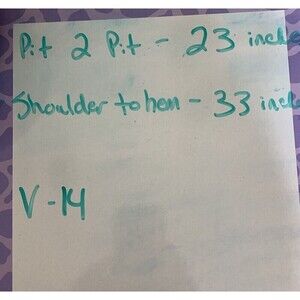 Pit 2 Pit - 23 inche
Shoulder to hem - 33 inche
V-14